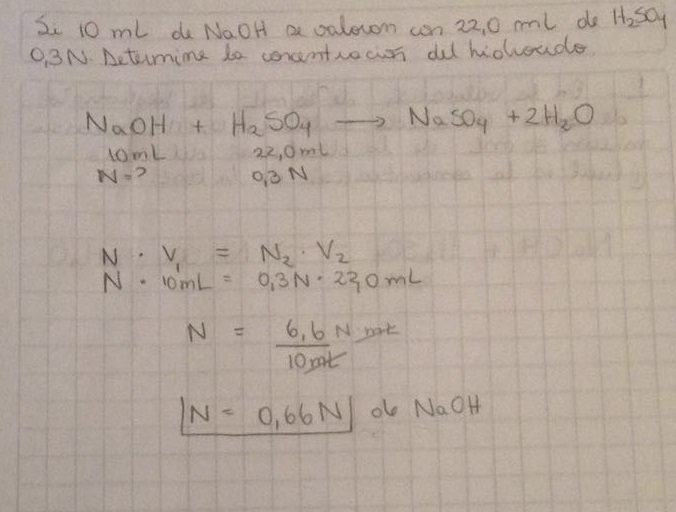 Si 10 mL de NaOH se valoron con 22,0 mL de H₂SO₄
0,3 N. Determine la concentracion del hidroxido.
NaOH + H₂SO₄ → NaSO₄ + 2H₂O
10mL 22,0mL
N=? 0,3 N
N · V₁ = N₂ · V₂
N · 10mL = 0,3N · 22,0mL
N = 6,6 N mL
10mL
N = 0,66N de NaOH